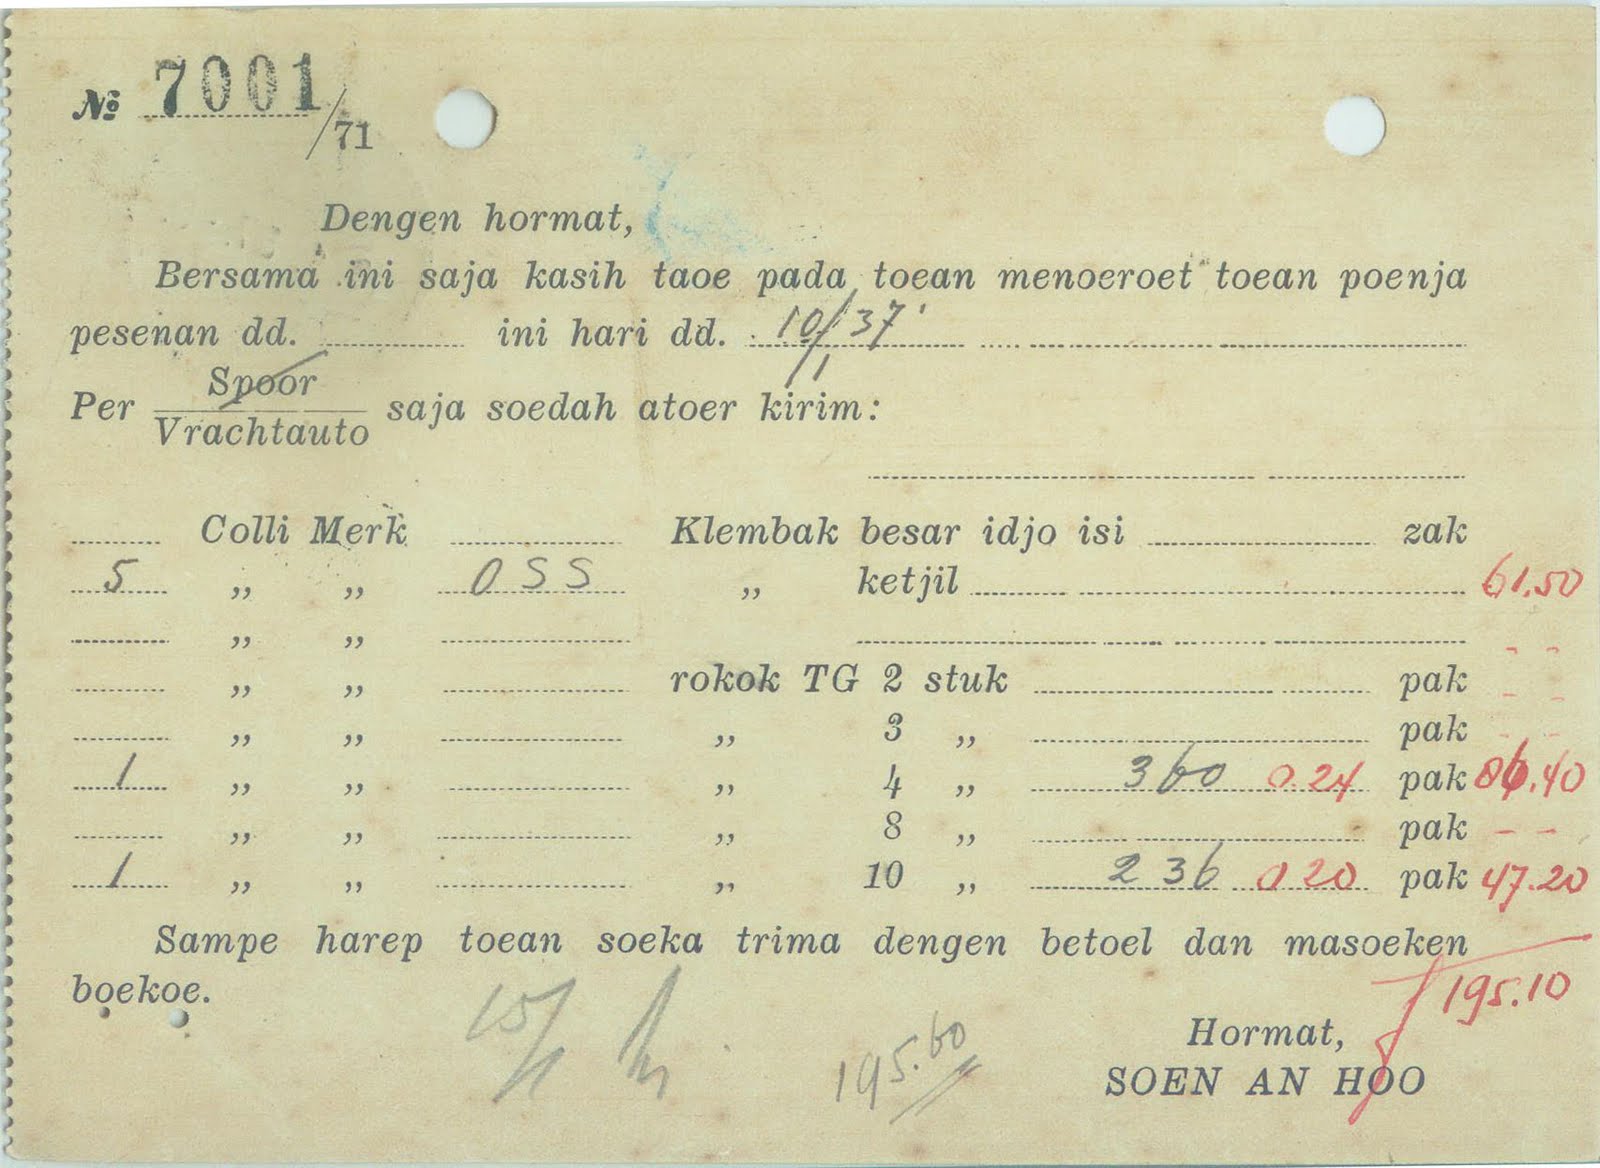 № 7001/71
Dengen hormat,
Bersama ini saja kasih taoe pada toean menoeroet toean poenja
pesenan dd. ini hari dd. 10/11 37
Spoor
Per saja soedah atoer kirim:
Vrachtauto
Colli Merk Klembak besar idjo isi zak
5 „ „ OSS „ ketjil 61.50
„ „ - -
„ „ rokok TG 2 stuk pak - -
„ „ „ 3 „ pak - -
1 „ „ „ 4 „ 360 0.24 pak 86.40
„ „ „ 8 „ pak - -
1 „ „ „ 10 „ 236 0 20 pak 47.20
Sampe harep toean soeka trima dengen betoel dan masoeken
boekoe.
f 195.10
15/11
195.60
Hormat,
SOEN AN HOO